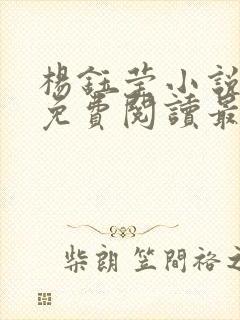 楊鈺莹小說
免費閱讀最
柴朗 笠間裕之